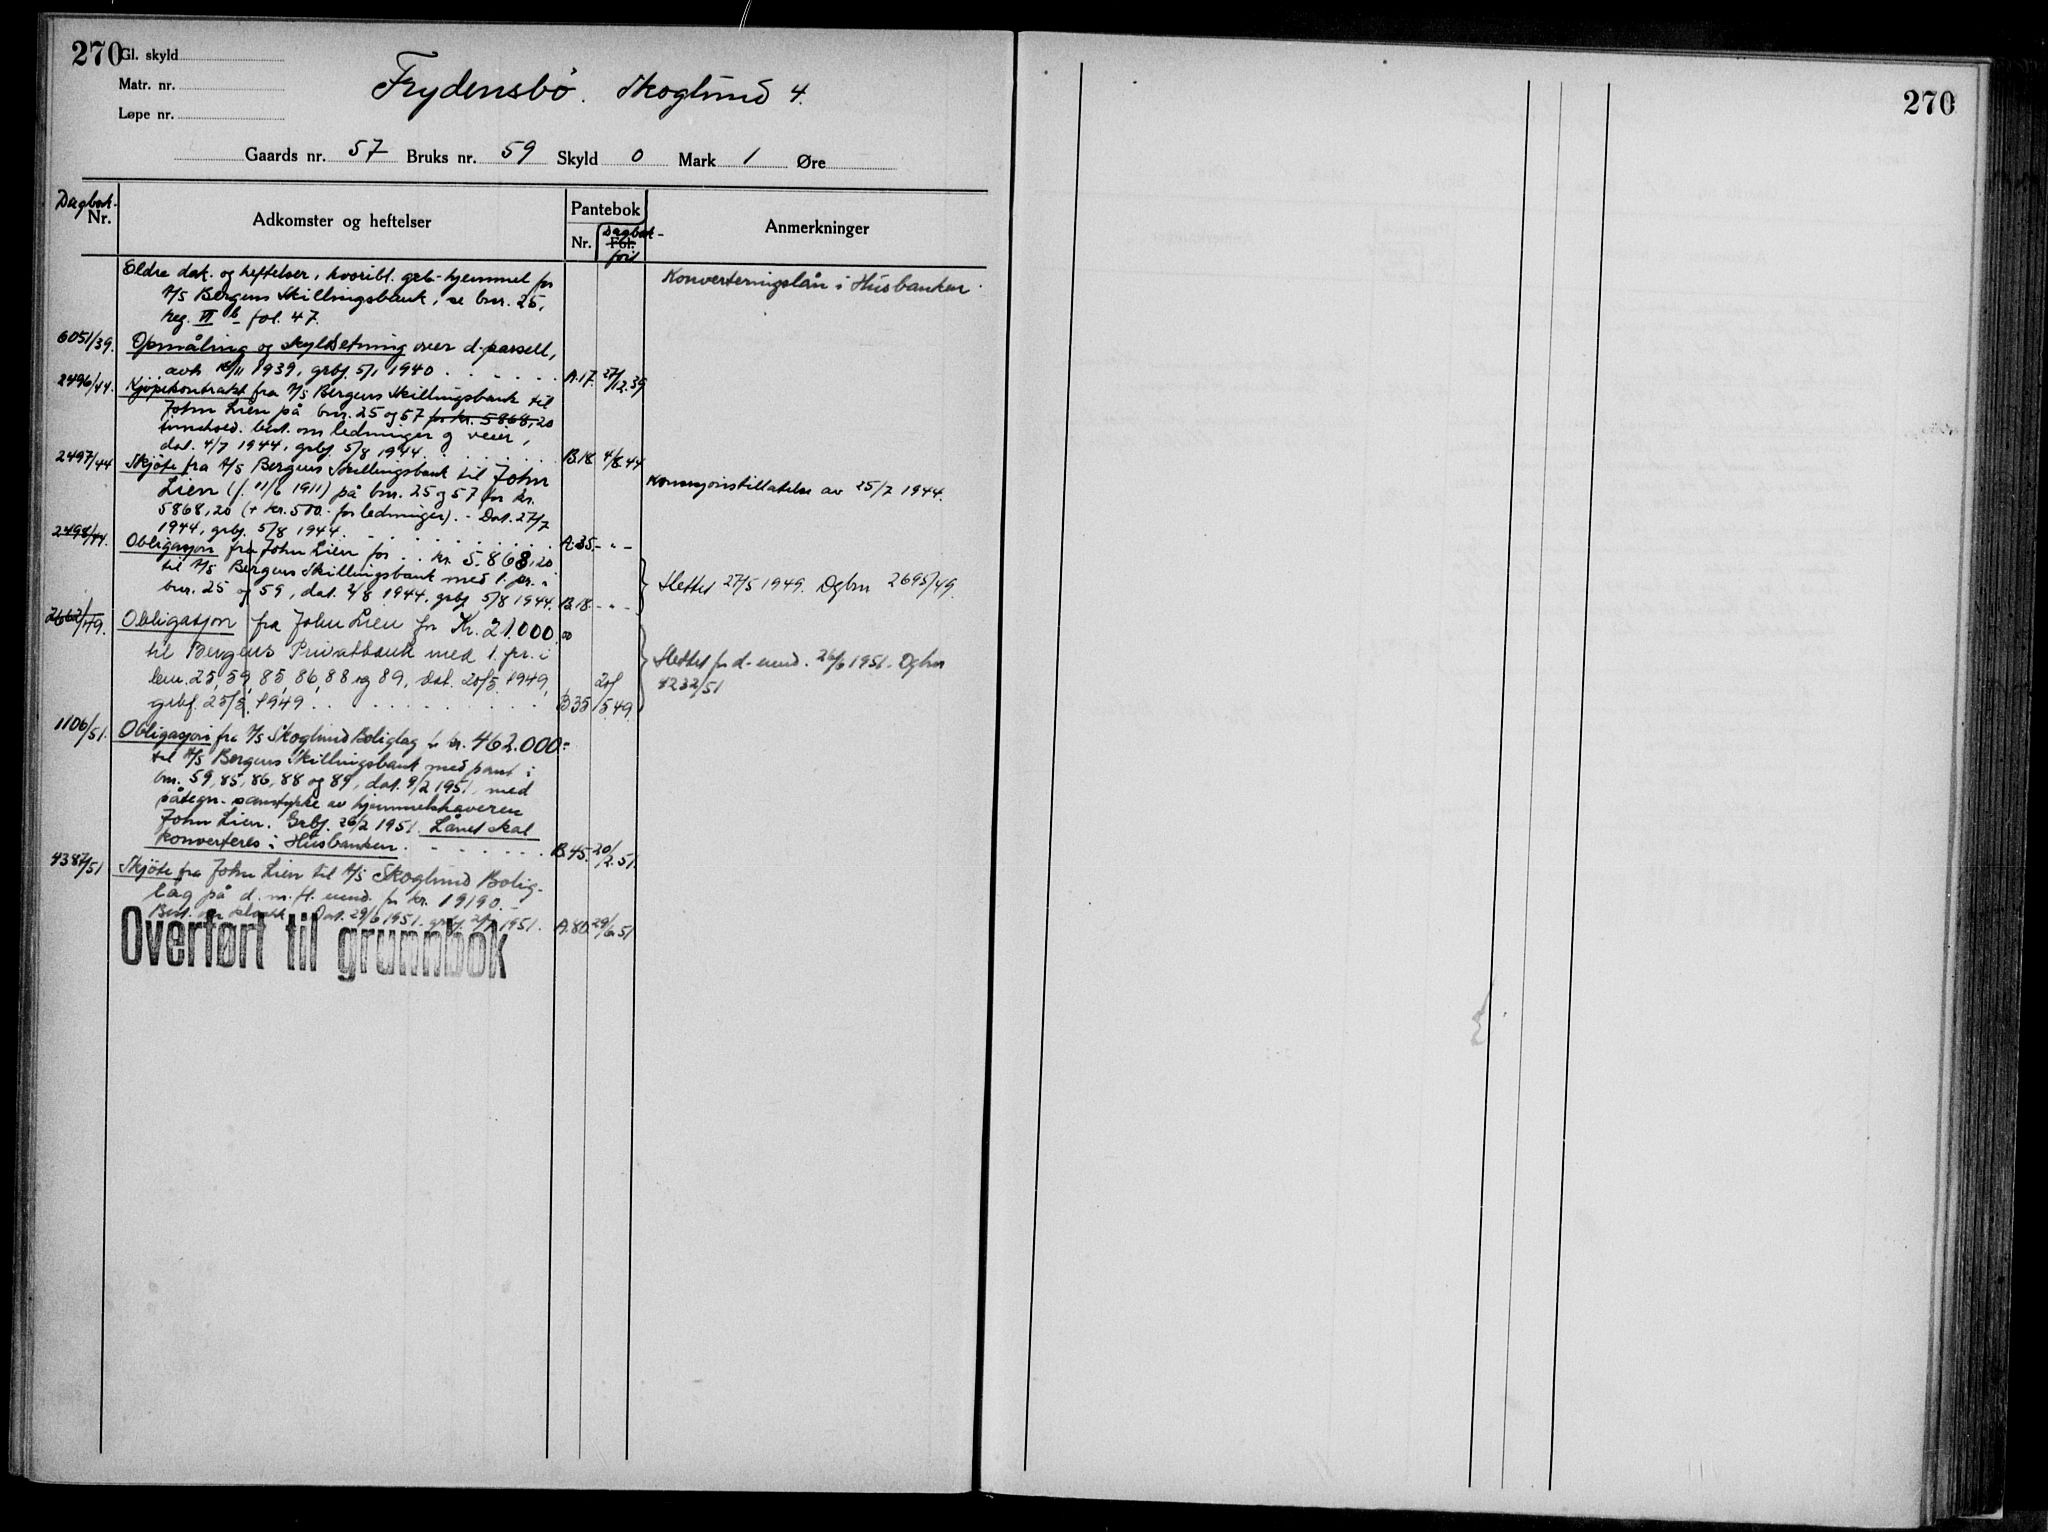 270 Gl. skyld
Matr. nr.
Løpe nr.
Frydensbø. Skoglund 4.
Gaards nr. 57 Bruks nr. 59 Skyld 0 Mark 1 Øre
Dagbok-
Nr.
Adkomster og heftelser
Pantebok
Nr.
Fol.
Dagbok-
ført
Anmerkninger
Eldre dok. og heftelser, hvoribl. grb-hjemmel for
A/S Bergens Skillingsbank, se bnr. 25,
reg. VI b fol. 47.
Konverteringslån i Husbanken.
6051/39. Opmåling og skyldsetning over d. parsell,
avh 16/11 1939, grbf. 5/1 1940 A.17. 27/12.39
2496/44. Kjøpekontrakt fra A/S Bergens Skillingsbank til
John Lien på bnr. 25 og 57 for kr. 5868,20
best. om ledninger og veier,
dat. 4/7 1944, grbf 5/8 1944 B.18. 4/8.44
2497/44 Skjøte fra A/S Bergens Skillingsbank til John
Lien (f. 11/6 1911) på bnr. 25 og 57 for kr.
5868,20 (+ kr. 500.- for ledninger). - Dat. 27/7
1944, grbf. 5/8 1944. A.35. - " -
Konsesjonstillatelse av 25/7 1944.
2498/44. Obligasjon fra John Lien for kr. 5.868,20
til A/S Bergens Skillingsbank med 1. pr. i
bnr. 25 og 59, dat. 2/8 1944, grbf 5/8 1944. B.18. - " -
Slettet 27/5 1949. Dgbnr 2695/49.
2662/49. Obligasjon fra John Lien for Kr. 21.000.00
til Bergens Privatbank med 1. pr. i
bnr. 25, 59, 85, 86, 88 og 89, dat. 20/5. 1949,
grbf. 25/5. 1949. B.35 20/5.49.
Slettet for d. eiend. 26/6 1951. Dgbnr
4232/51
1106/51. Obligasjon fra A/S Skoglund Boliglag for kr. 462.000.-
til A/S Bergens Skillingsbank med pant i
bnr. 59, 85, 86, 88 og 89, dat. 9/2 1951, med
påtegn. samtykke av hjemmelshaveren
John Lien. Grbf. 26/2 1951. Lånet skal
konverteres i Husbanken. B.45. 20/2.51.
4387/51 Skjøte fra John Lien til A/S Skoglund Bolig-
lag på d. m. fl. eiend. for kr. 19190.-
Best. om kloakk. Dat. 29/6 1951. grbf. 2/7 1951. A.80. 29/6.51
Overført til grunnbok
270